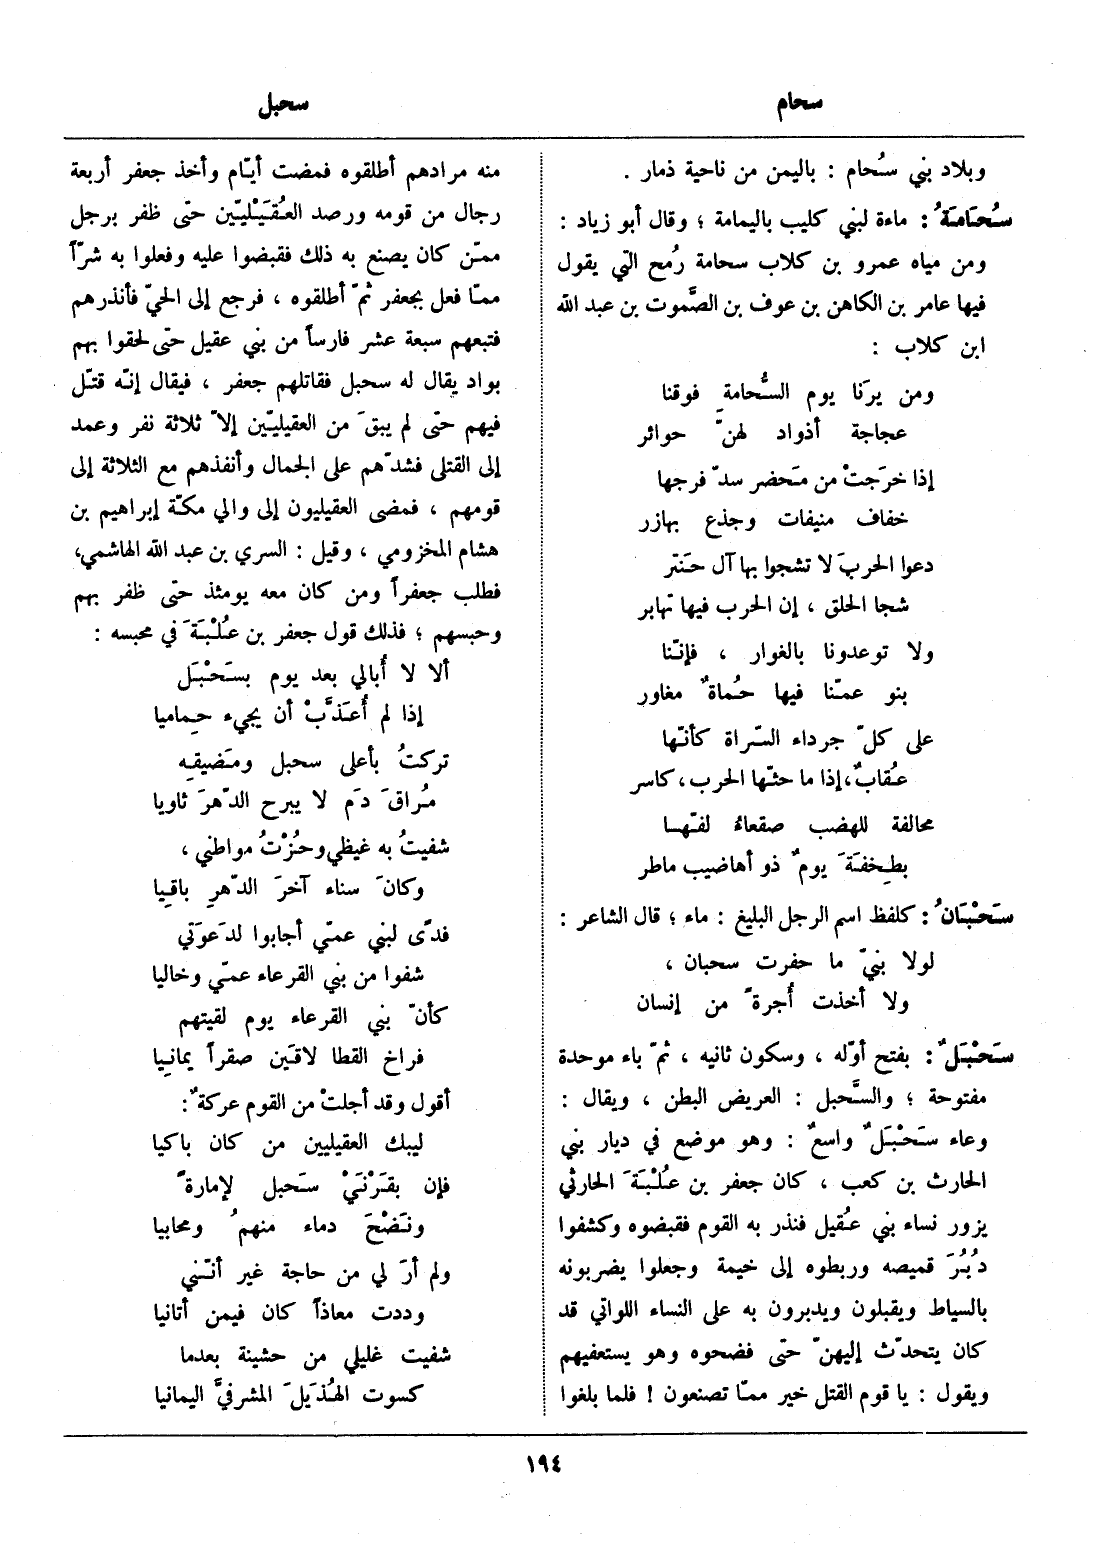 سحام
سحبل
وبلاد بني سُحام : باليمن من ناحية ذمار .
سُحَامَةُ : ماءة لبني كليب باليمامة ؛ وقال أبو زياد :
ومن مياه عمرو بن كلاب سحامة رُمح التي يقول
فيها عامر بن الكاهن بن عوف بن الصَّموت بن عبد الله
ابن كلاب :
ومن يرَنا يوم السُّحامةِ فوقنا
عجاجة أذواد لهنّ حوائر
إذا خرَجتْ من مَحضر سدّ فرجها
خفاف منيفات وجذع بهازر
دعوا الحربَ لا تشجوا بها آل حَنتر
شجا الحلق ، إن الحرب فيها تهابر
ولا توعدونا بالغوار ، فإنّنا
بنو عمّنا فيها حُماةٌ مغاور
على كلّ جرداء السّراة كأنّها
عُقابٌ، إذا ما حثّها الحرب، كاسر
محالفة للهضب صقعاءُ لفّها
بطِخفَةَ يومٌ ذو أهاضيب ماطر
سَحْبَانُ : كلفظ اسم الرجل البليغ : ماء ؛ قال الشاعر :
لولا بنيّ ما حفرت سحبان ،
ولا أخذت أُجرةً من إنسان
سَحْبَلٌ : بفتح أوّله ، وسكون ثانيه ، ثمّ باء موحدة
مفتوحة ؛ والسَّحبل : العريض البطن ، ويقال :
وعاء سَحْبَلٌ واسعٌ : وهو موضع في ديار بني
الحارث بن كعب ، كان جعفر بن عُلْبَةَ الحارثي
يزور نساء بني عُقيل فنذر به القوم فقبضوه وكشفوا
دُبُرَ قميصه وربطوه إلى خيمة وجعلوا يضربونه
بالسياط ويقبلون ويدبرون به على النساء اللواتي قد
كان يتحدّث إليهنّ حتى فضحوه وهو يستعفيهم
ويقول : يا قوم القتل خير ممّا تصنعون ! فلما بلغوا
منه مرادهم أطلقوه فمضت أيّام وأخذ جعفر أربعة
رجال من قومه ورصد العُقَيْليّين حتّى ظفر برجل
ممّن كان يصنع به ذلك فقبضوا عليه وفعلوا به شرّاً
ممّا فعل بجعفر ثمّ أطلقوه ، فرجع إلى الحيّ فأنذرهم
فتبعهم سبعة عشر فارساً من بني عقيل حتّى لحقوا بهم
بواد يقال له سحبل فقاتلهم جعفر ، فيقال إنّه قتّل
فيهم حتّى لم يبقَ من العقيليّين إلاّ ثلاثة نفر وعمد
إلى القتلى فشدّهم على الجمال وأنفذهم مع الثلاثة إلى
قومهم ، فمضى العقيليون إلى والي مكّة إبراهيم بن
هشام المخزومي ، وقيل : السري بن عبد الله الهاشمي،
فطلب جعفراً ومن كان معه يومئذ حتّى ظفر بهم
وحبسهم ؛ فذلك قول جعفر بن عُلْبَةَ في محبسه :
ألا لا أُبالي بعد يوم بسَحْبَل
إذا لم أُعَذَّبْ أن يجيء حِماميا
تركتُ بأعلى سحبل ومَضيقِه
مُراقَ دَم لا يبرح الدّهرَ ثاويا
شفيتُ به غيظي وحُزْتُ مواطني ،
وكانَ سناء آخرَ الدّهرِ باقيا
فدًى لبني عمّي أجابوا لدَعوَتي
شفوا من بني القرعاء عمّي وخاليا
كأنّ بني القرعاء يوم لقيتهم
فراخ القطا لاقَين صقراً يمانِيا
أقول وقد أجلتْ من القوم عركةٌ:
ليبك العقيليين من كان باكيا
فإن بقَرْنَيْ سَحبل لإمارةً
ونَضْحَ دماء منهمُ ومحابيا
ولم أرَ لي من حاجة غير أنّني
وددت معاذاً كان فيمن أتانيا
شفيت غليلي من حشينة بعدما
كسوت الهُذيلَ المشرفيَّ اليمانيا
١٩٤